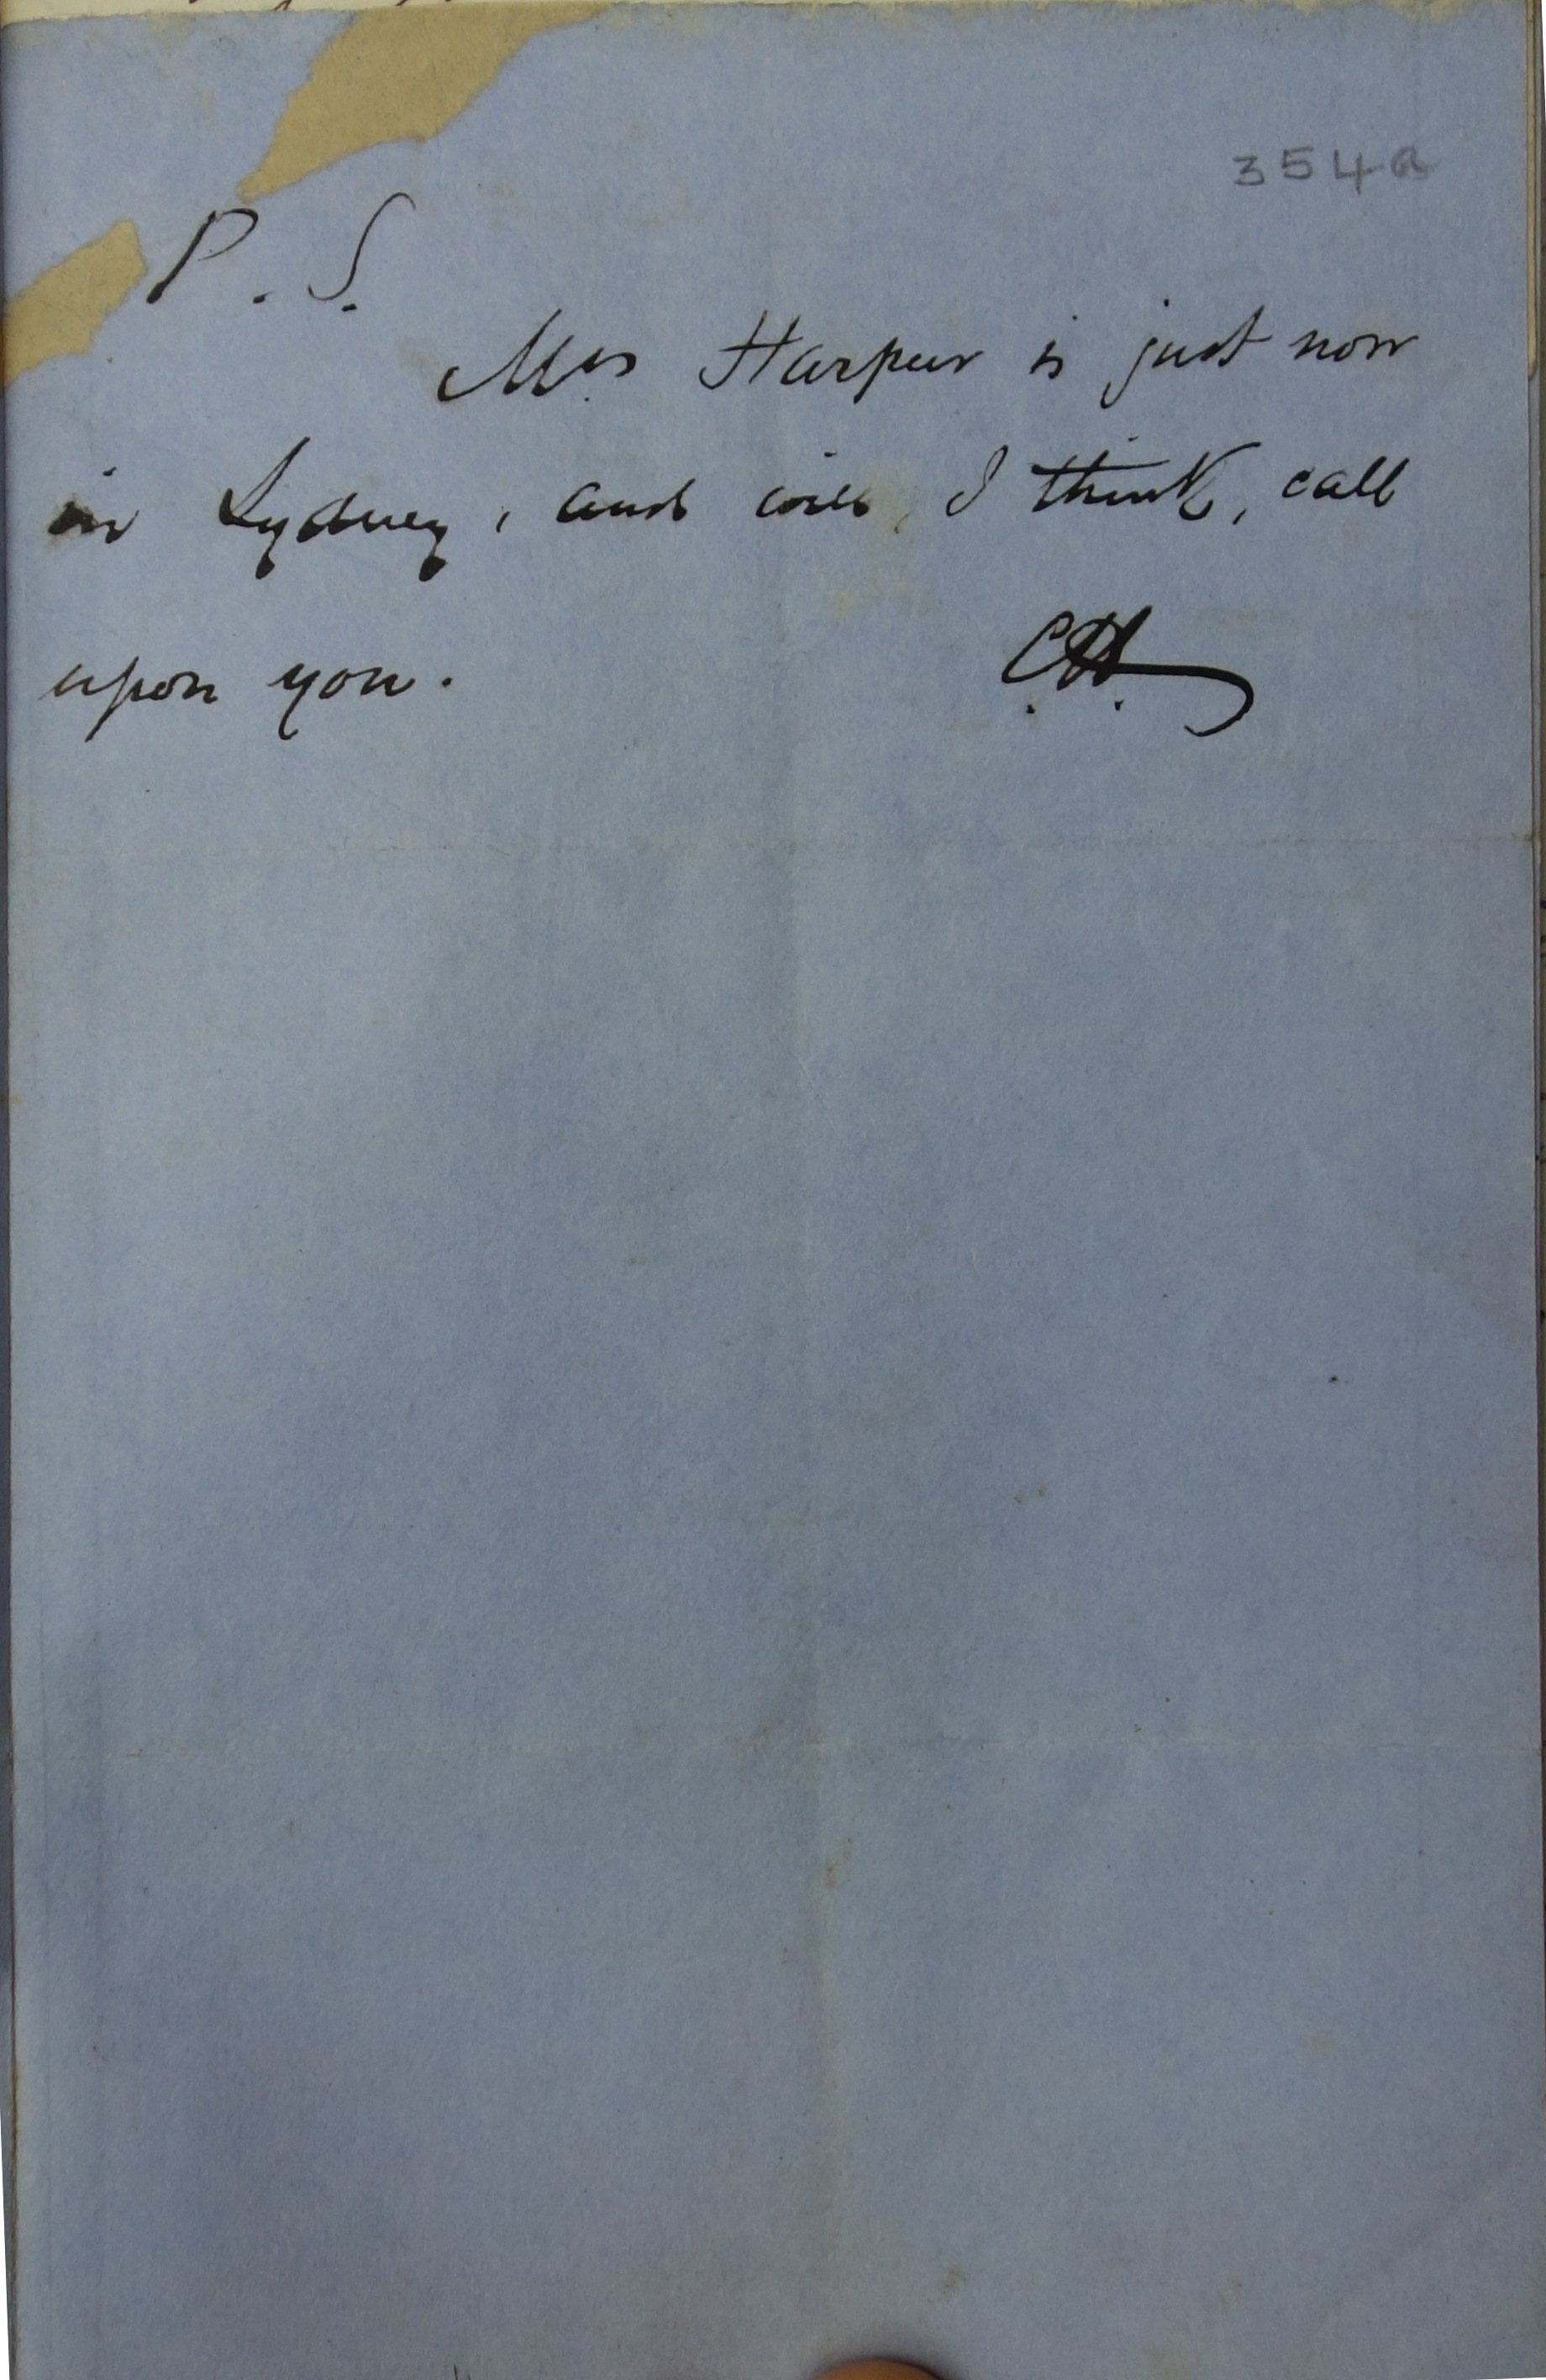 354a
P. S.
Mrs Harpur is just now
in Sydney, and will, I think, call
upon you.
C.H.